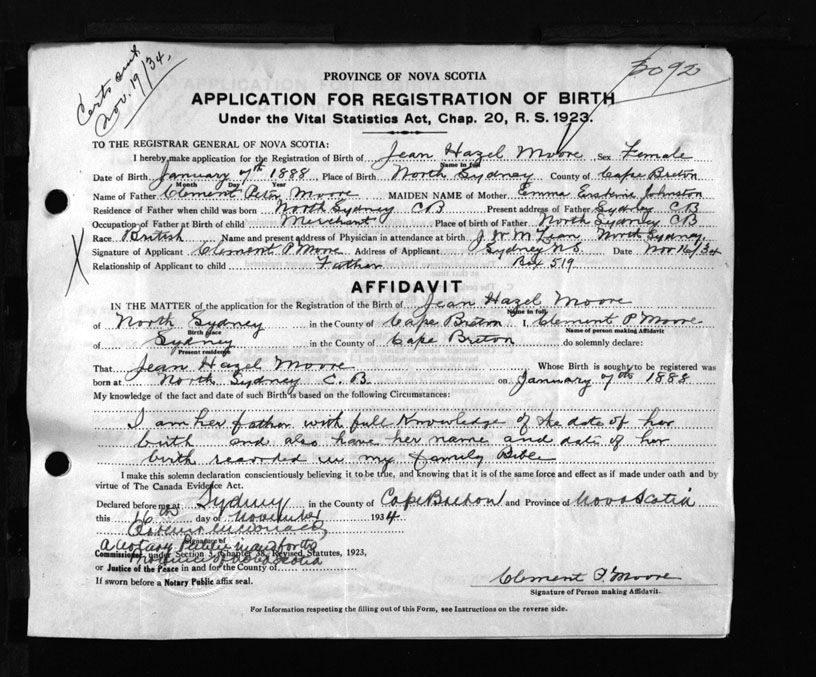 Certs sent
Nov. 19/34.
3092
PROVINCE OF NOVA SCOTIA
APPLICATION FOR REGISTRATION OF BIRTH
Under the Vital Statistics Act, Chap. 20, R. S. 1923.
TO THE REGISTRAR GENERAL OF NOVA SCOTIA:
I hereby make application for the Registration of Birth of Jean Hazel Moore Sex Female
Name in full
Date of Birth January 7th 1888 Place of Birth North Sydney County of Cape Breton
Month Day Year
Name of Father Clement Peter Moore MAIDEN NAME of Mother Emma Erskine Johnston
Residence of Father when child was born North Sydney CB Present address of Father Sydney C.B
Occupation of Father at Birth of child Merchant Place of birth of Father North Sydney CB
Race British Name and present address of Physician in attendance at birth J. W. McLean North Sydney.
Signature of Applicant Clement P Moore Address of Applicant Sydney N.S Date Nov 16/34
Relationship of Applicant to child Father Box 519
X
AFFIDAVIT
IN THE MATTER of the application for the Registration of the Birth of Jean Hazel Moore
Name in full
of North Sydney in the County of Cape Breton I, Clement P Moore
Birth place Name of person making Affidavit
of Sydney in the County of Cape Breton do solemnly declare:
Present residence
That Jean Hazel Moore Whose Birth is sought to be registered was
born at North Sydney C. B. on January 7th 1888
My knowledge of the fact and date of such Birth is based on the following Circumstances:
I am her father with full Knowledge of the date of her
birth and also have her name and date of her
birth recorded in my family Bible
I make this solemn declaration conscientiously believing it to be true, and knowing that it is of the same force and effect as if made under oath and by
virtue of The Canada Evidence Act.
Declared before me at Sydney in the County of Cape Breton and Province of Nova Scotia
this 16th day of November 1934
Signature of
A Notary Public in and for the
Commissioner, under Section 5, Chapter 38, Revised Statutes, 1923,
Province of Nova Scotia
or Justice of the Peace in and for the County of
If sworn before a Notary Public affix seal.
Clement P. Moore
Signature of Person making Affidavit.
For Information respecting the filling out of this Form, see Instructions on the reverse side.